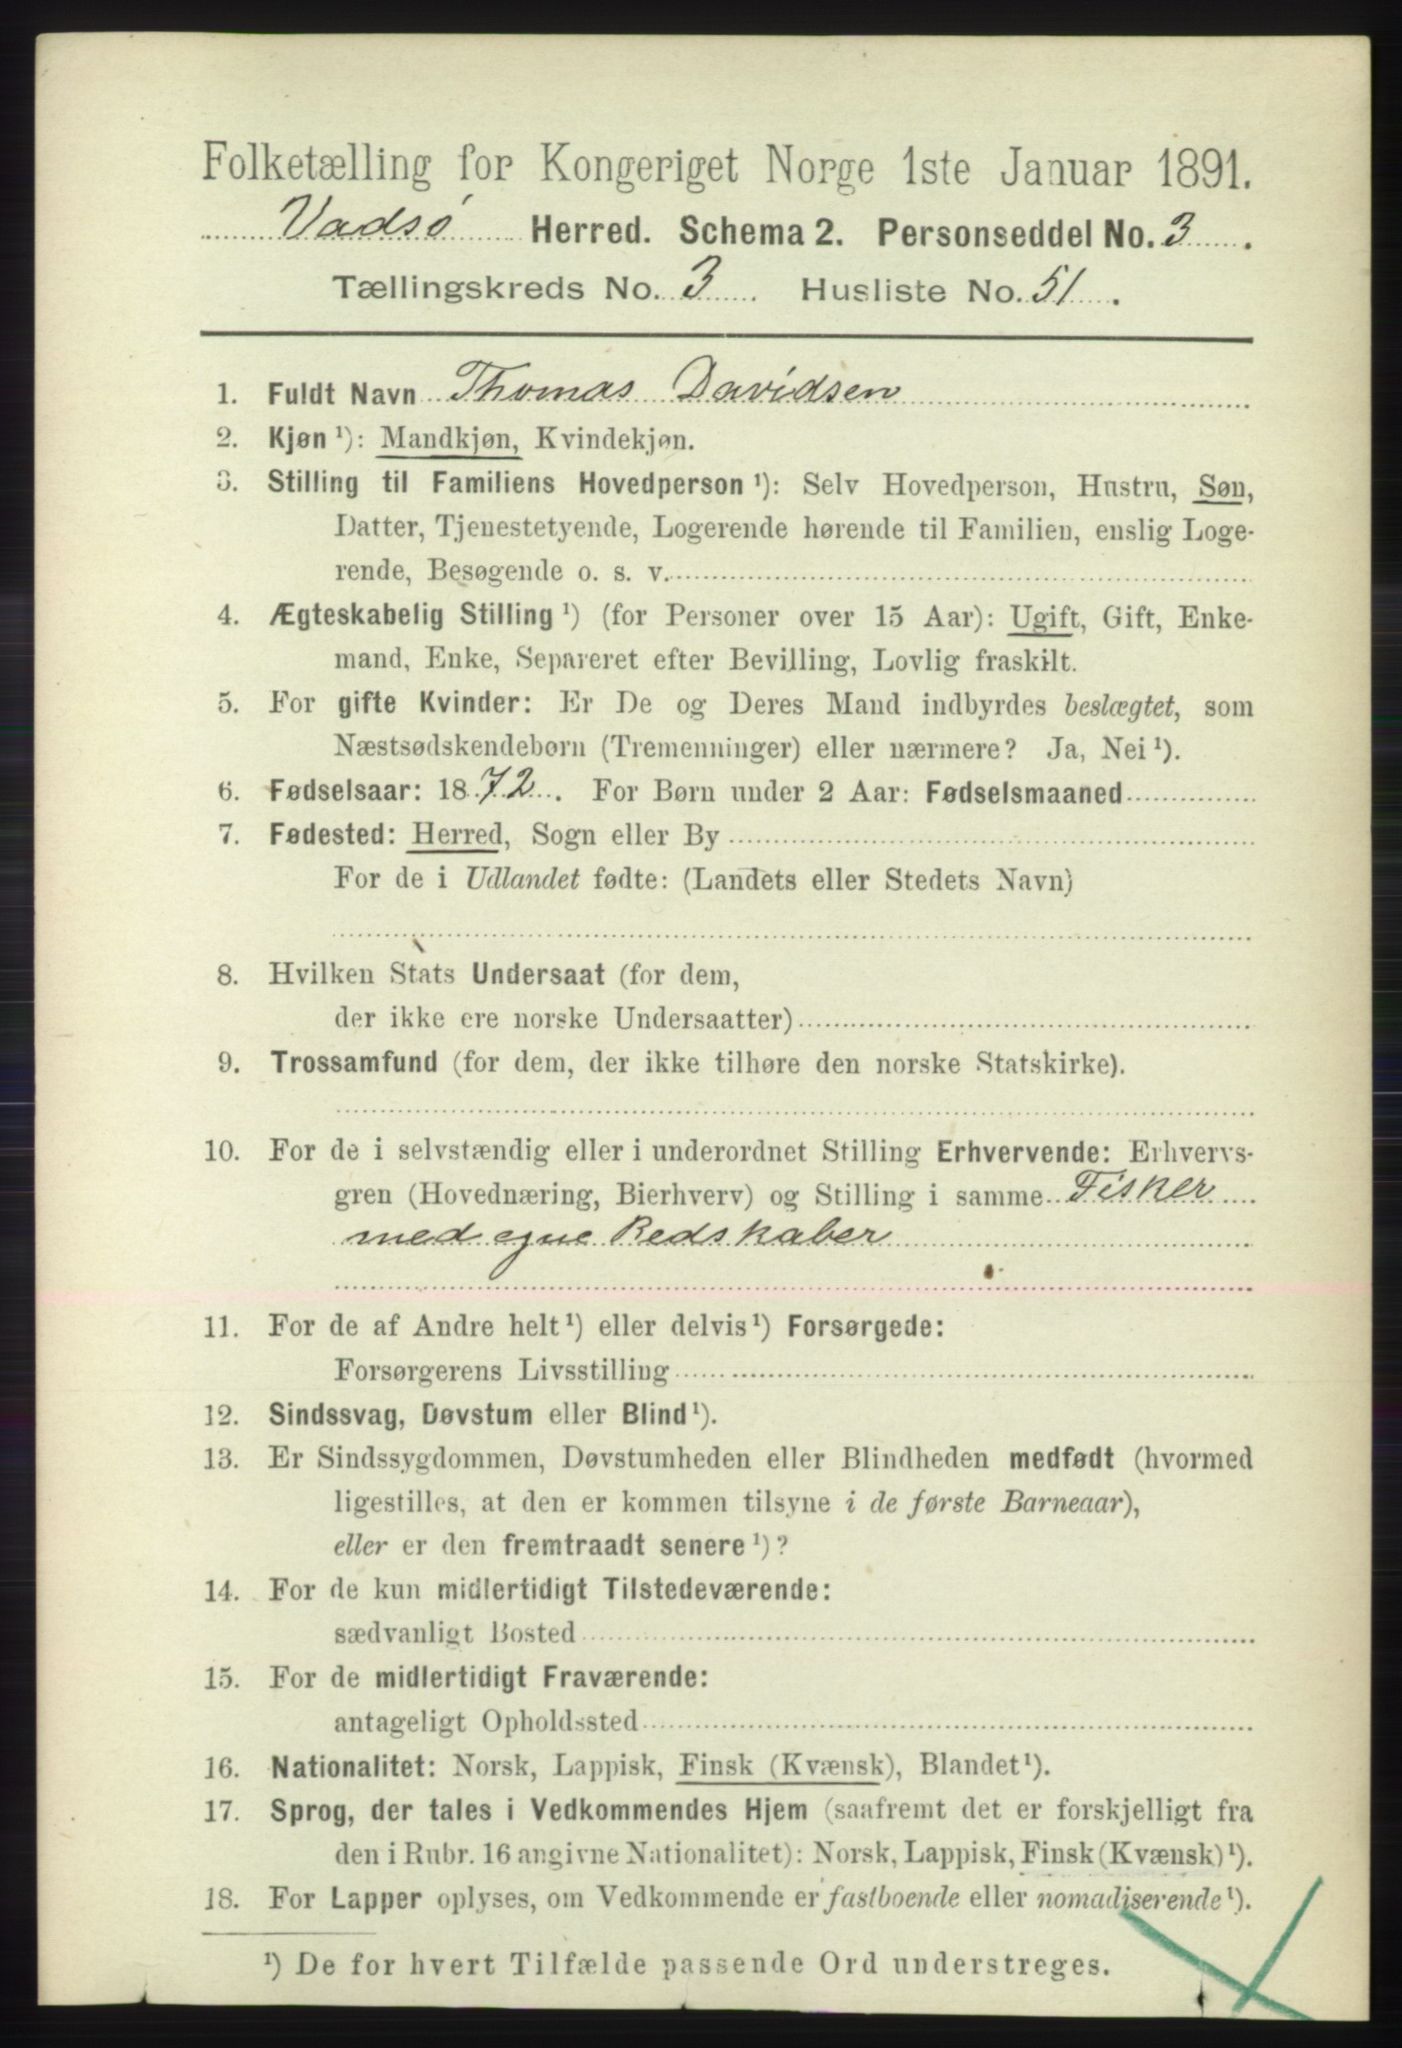 Folketælling for Kongeriget Norge 1ste Januar 1891.
Vadsø Herred. Schema 2. Personseddel No. 3.
Tællingskreds No. 3. Husliste No. 51.
1. Fuldt Navn Thomas Davidsen
2. Kjøn ¹): Mandkjøn, Kvindekjøn.
3. Stilling til Familiens Hovedperson ¹): Selv Hovedperson, Hustru, Søn,
Datter, Tjenestetyende, Logerende hørende til Familien, enslig Loge-
rende, Besøgende o. s. v.
4. Ægteskabelig Stilling ¹) (for Personer over 15 Aar): Ugift, Gift, Enke-
mand, Enke, Separeret efter Bevilling, Lovlig fraskilt.
5. For gifte Kvinder: Er De og Deres Mand indbyrdes beslægtet, som
Næstsødskendebørn (Tremenninger) eller nærmere? Ja, Nei ¹).
6. Fødselsaar: 1872. For Børn under 2 Aar: Fødselsmaaned
7. Fødested: Herred, Sogn eller By
For de i Udlandet fødte: (Landets eller Stedets Navn)
8. Hvilken Stats Undersaat (for dem,
der ikke ere norske Undersaatter)
9. Trossamfund (for dem, der ikke tilhøre den norske Statskirke).
10. For de i selvstændig eller i underordnet Stilling Erhvervende: Erhvervs-
gren (Hovednæring, Bierhverv) og Stilling i samme Fisker
med egne Redskaber
11. For de af Andre helt ¹) eller delvis ¹) Forsørgede:
Forsørgerens Livsstilling
12. Sindssvag, Døvstum eller Blind ¹).
13. Er Sindssygdommen, Døvstumheden eller Blindheden medfødt (hvormed
ligestilles, at den er kommen tilsyne i de første Barneaar),
eller er den fremtraadt senere ¹)?
14. For de kun midlertidigt Tilstedeværende:
sædvanligt Bosted
15. For de midlertidigt Fraværende:
antageligt Opholdssted
16. Nationalitet: Norsk, Lappisk, Finsk (Kvænsk), Blandet ¹).
17. Sprog, der tales i Vedkommendes Hjem (saafremt det er forskjelligt fra
den i Rubr. 16 angivne Nationalitet): Norsk, Lappisk, Finsk (Kvænsk) ¹).
18. For Lapper oplyses, om Vedkommende er fastboende eller nomadiserende ¹).
¹) De for hvert Tilfælde passende Ord understreges.